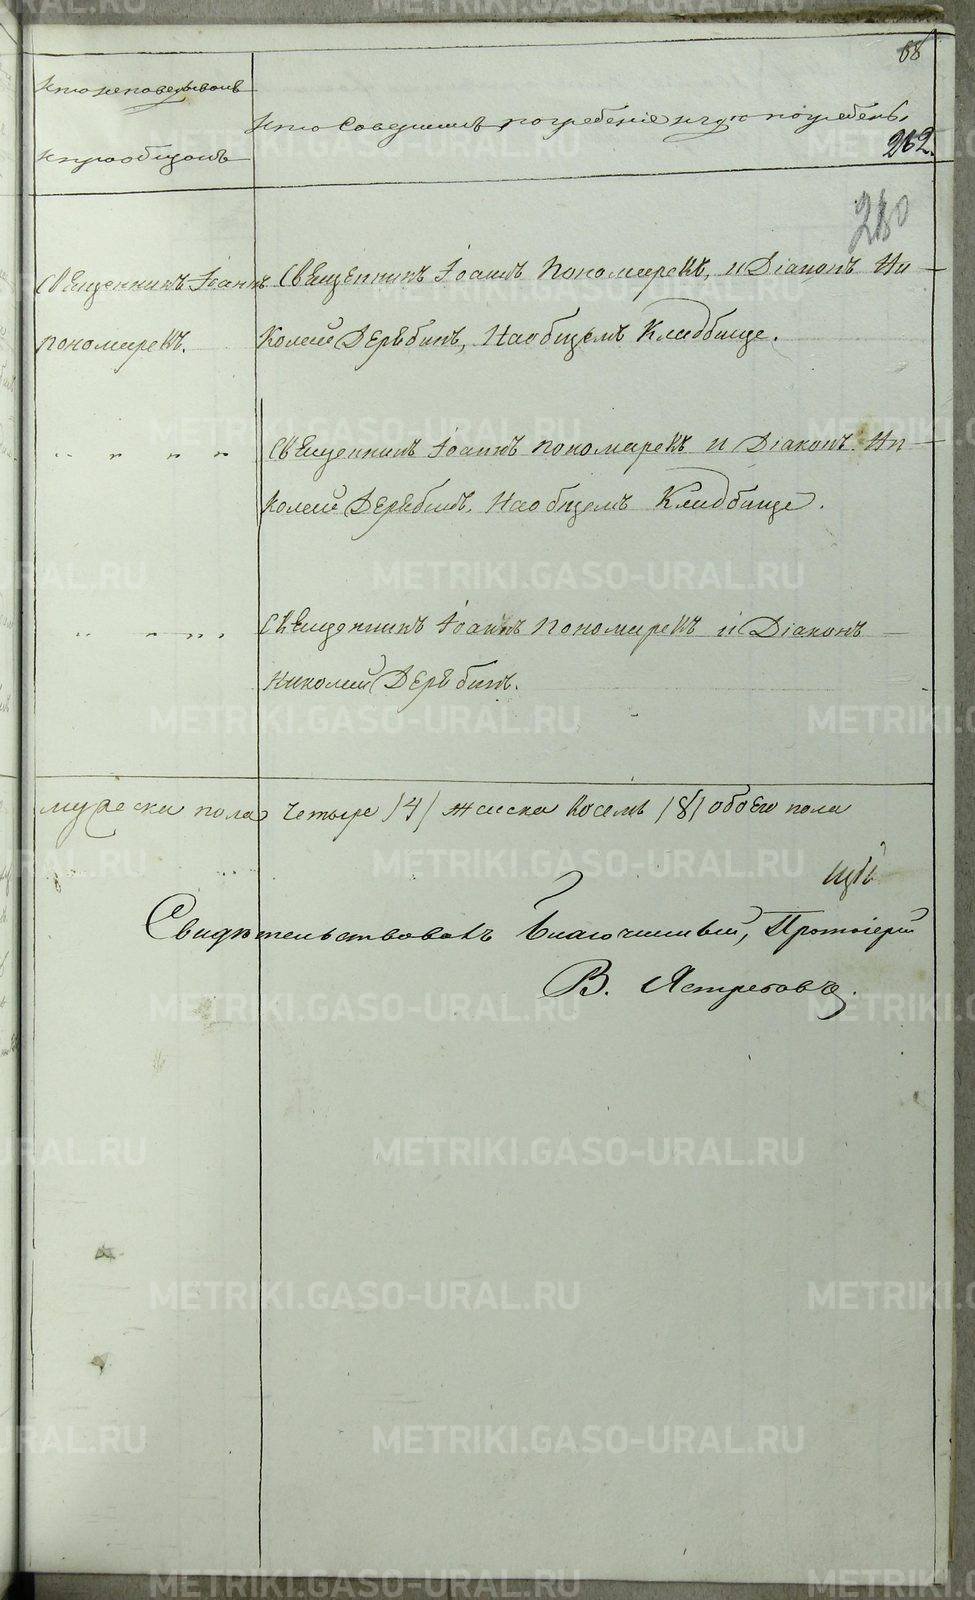 68
Кто исповедывалъ
и приобщалъ
Кто совершилъ погребеніе и гдѣ погребены.
262.
280
Священникъ Іоаннъ
Пономаревъ.
Священникъ Іоаннъ Пономаревъ, и Діаконъ Ни-
колай Дерябинъ, На общемъ Кладбище.
" " " "
Священникъ Іоаннъ Пономаревъ и Діаконъ Ни-
колай Дерябинъ. На общемъ Кладбище.
" " " "
Священникъ Іоаннъ Пономаревъ и Діаконъ
Николай Дерябинъ.
мужеска пола четыре /4/ женска восемь /8/ обоего пола
Свидѣтельствовалъ Благочинный, Протоіерей
В. Ястребовъ.
METRIKI.GASO-URAL.RU